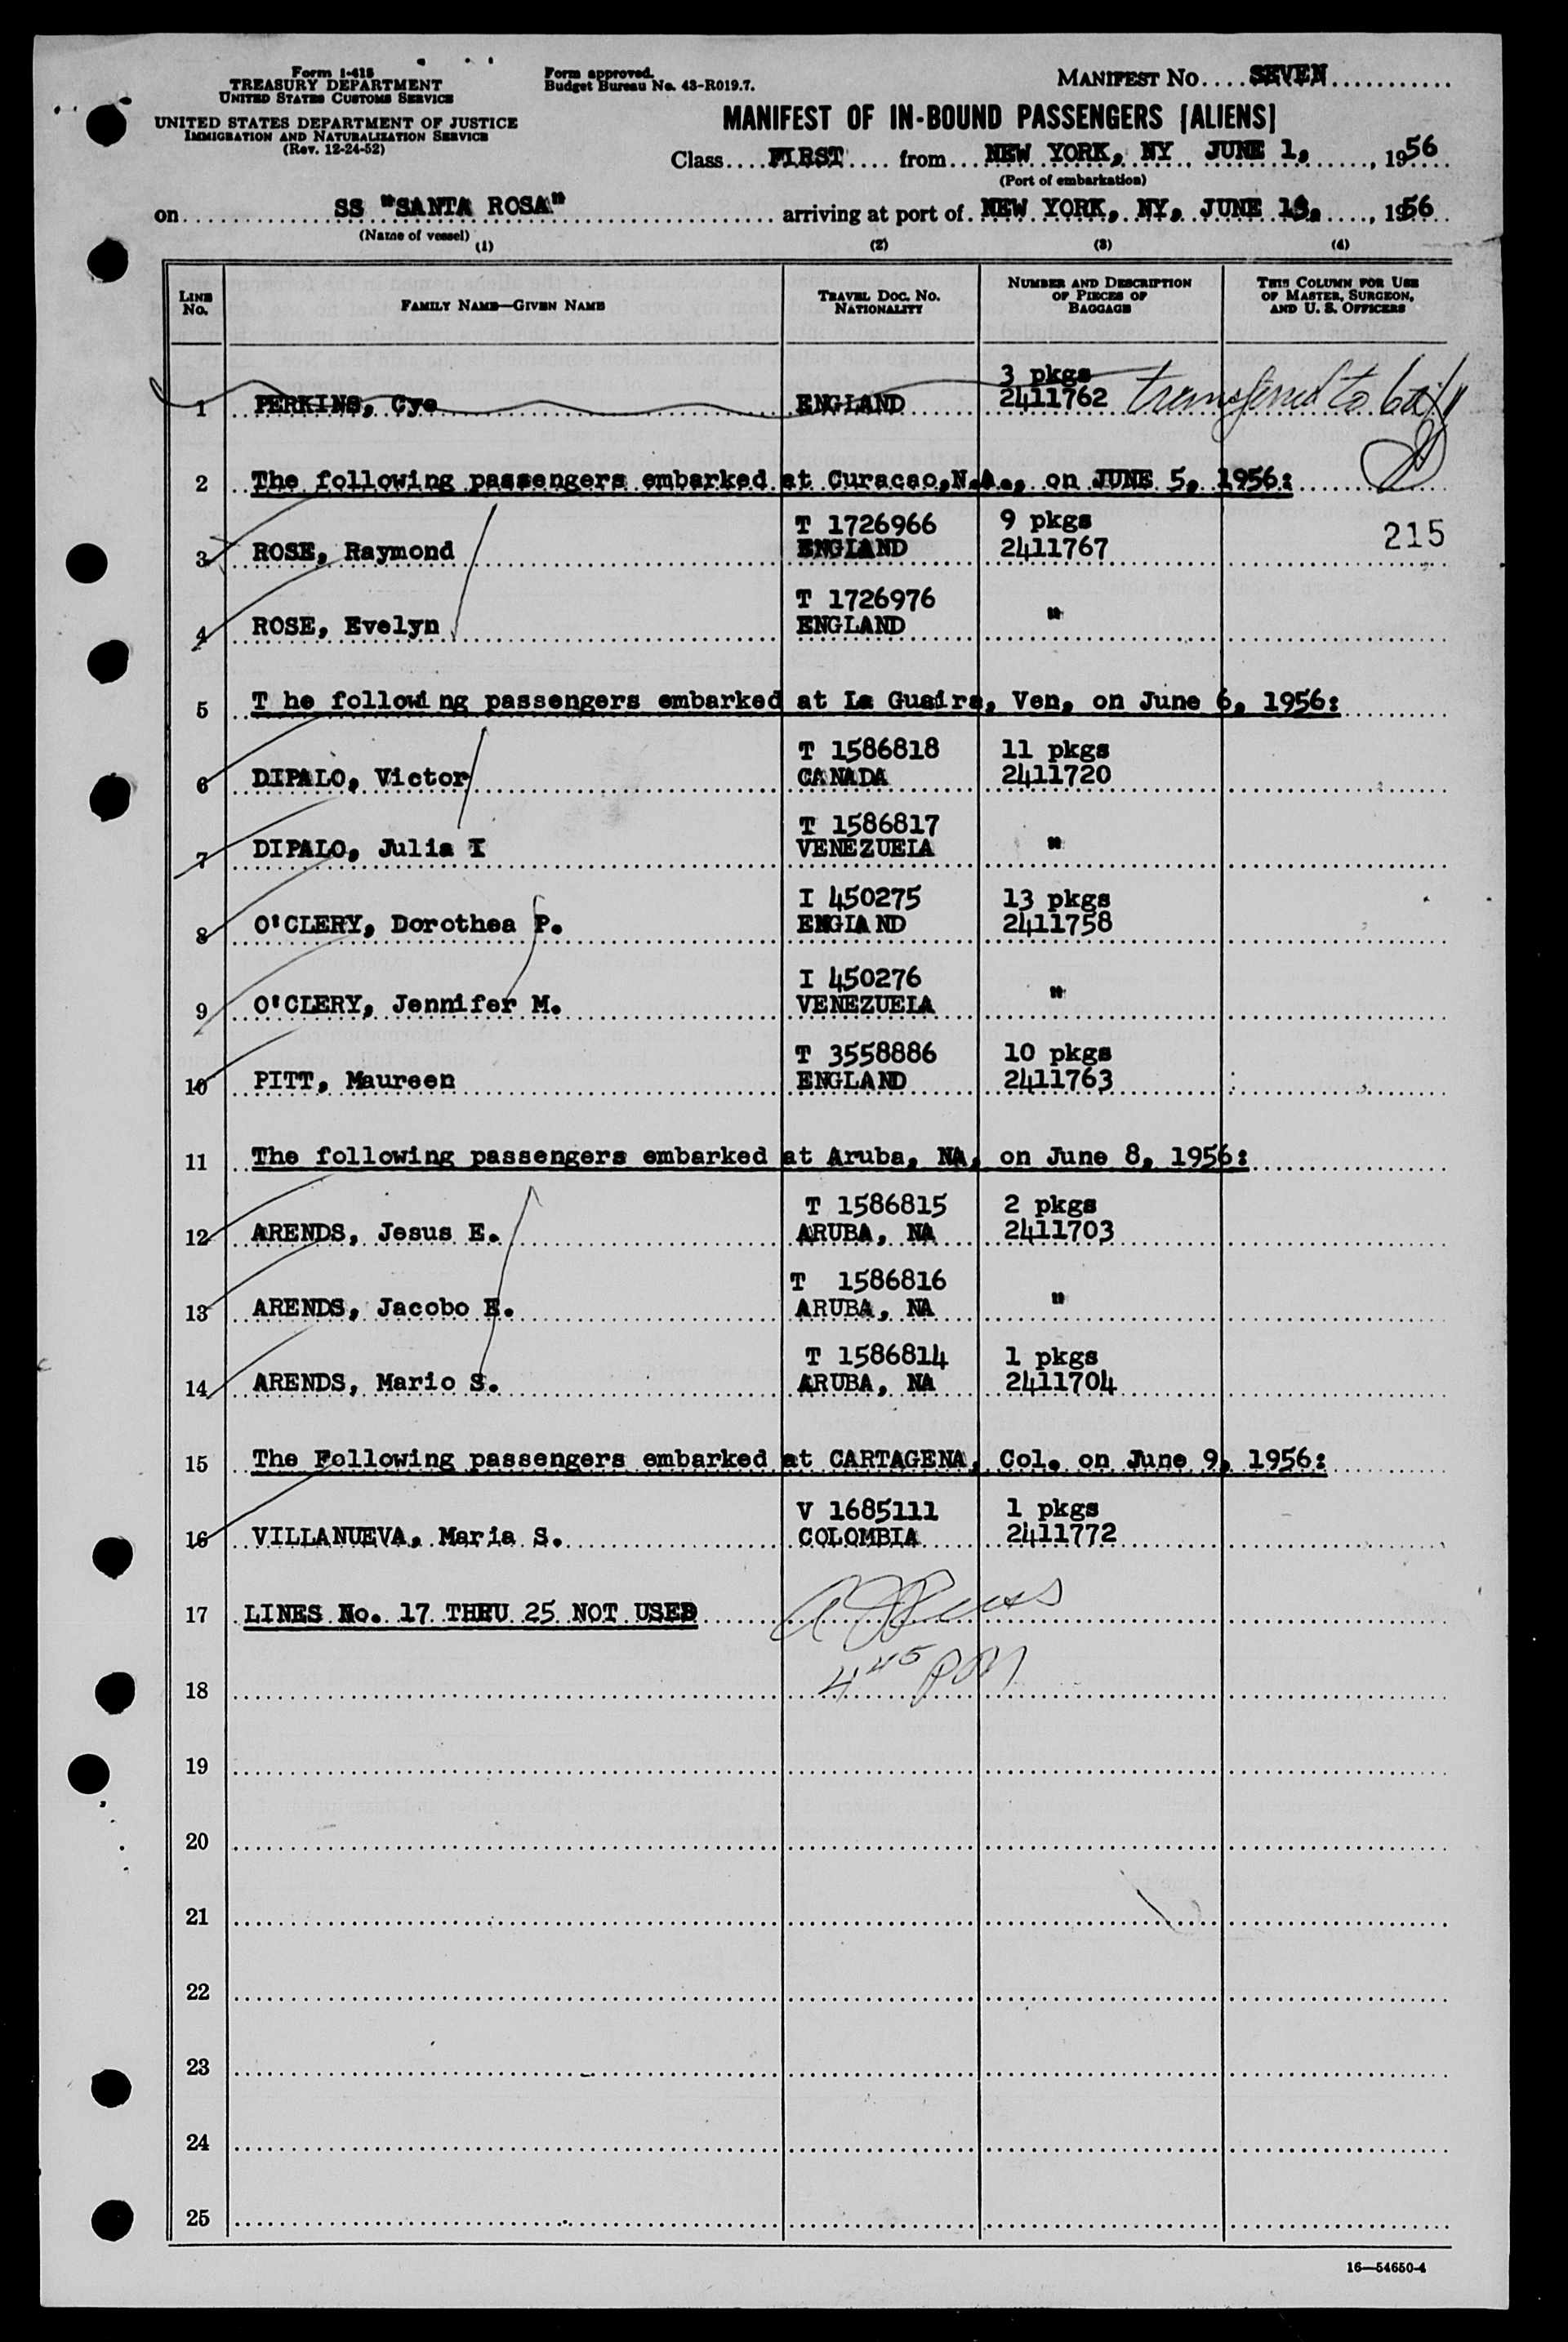 Form I-415
TREASURY DEPARTMENT
UNITED STATES CUSTOMS SERVICE
UNITED STATES DEPARTMENT OF JUSTICE
IMMIGRATION AND NATURALIZATION SERVICE
(Rev. 12-24-52)
Form approved.
Budget Bureau No. 43-R019.7.
MANIFEST NO.... SEVEN
MANIFEST OF IN-BOUND PASSENGERS (ALIENS)
Class.... FIRST .... from.... NEW YORK, NY JUNE 1, ...., 1956
(Port of embarkation)
on .... SS "SANTA ROSA" .... arriving at port of NEW YORK, NY, JUNE 13, ...., 1956
(Name of vessel)
(1) (2) (3) (4)
LINE NO. FAMILY NAME—GIVEN NAME TRAVEL DOC. NO. NATIONALITY NUMBER AND DESCRIPTION OF PIECES OF BAGGAGE THIS COLUMN FOR USE OF MASTER, SURGEON, AND U. S. OFFICERS
3 pkgs
1 PERKINS, Cye ENGLAND 2411762 transferred to
2 The following passengers embarked at Curacao,N.A., on JUNE 5, 1956:
T 1726966 9 pkgs 215
3 ROSE, Raymond ENGLAND 2411767
T 1726976
4 ROSE, Evelyn ENGLAND "
5 T he followi ng passengers embarked at La Guaira, Ven, on June 6, 1956:
T 1586818 11 pkgs
6 DIPALO, Victor CANADA 2411720
T 1586817
7 DIPALO, Julia I VENEZUELA "
I 450275 13 pkgs
8 O'CLERY, Dorothea P. ENGLA ND 2411758
I 450276
9 O'CLERY, Jennifer M. VENEZUELA "
T 3558886 10 pkgs
10 PITT, Maureen ENGLAND 2411763
11 The following passengers embarked at Aruba, NA, on June 8, 1956:
T 1586815 2 pkgs
12 ARENDS, Jesus E. ARUBA, NA 2411703
T 1586816
13 ARENDS, Jacobo E. ARUBA, NA "
T 1586814 1 pkgs
14 ARENDS, Mario S. ARUBA, NA 2411704
15 The Following passengers embarked at CARTAGENA, Col. on June 9, 1956:
V 1685111 1 pkgs
16 VILLANUEVA, Maria S. COLOMBIA 2411772
17 LINES No. 17 THRU 25 NOT USED
18 4 45 PM
19
20
21
22
23
24
25
16—54650-4